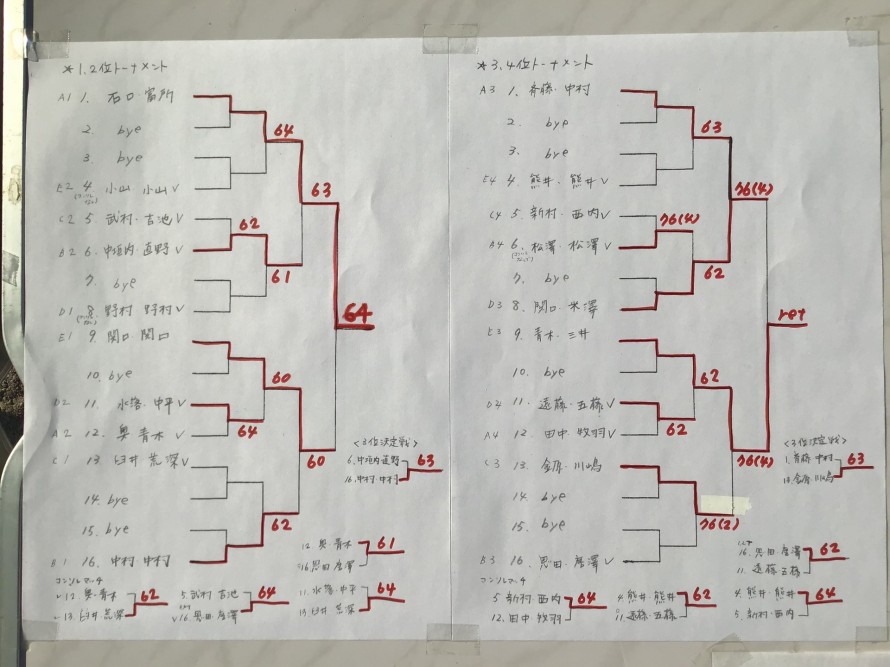 *1.2位トーナメント
A1 1. 石口 富所
2. bye
64
3. bye
E2 4 小山 小山 V
63
C2 5 武村・吉池 V
62
B2 6. 中垣内・直野 V
61
7. bye
D1 8. 野村 野村 V
64
E1 9 関口 関口
10. bye
60
D2 11. 水落・中平 V
64
A2 12. 奥 青木 V
60
C1 13. 臼井 荒深 V
14. bye
62
15. bye
B1 16. 中村 中村
<3位決定戦>
6. 中垣内 直野
63
16. 中村 中村
12 奥・青木
61
16 恩田・唐澤
コンソレマッチ
12 奥・青木
62
13 臼井 荒深
5. 武村 吉池
64
16. 恩田・唐澤
11. 水落・中平
64
13 臼井 荒深
*3.4位トーナメント
A3 1. 斉藤・中村
2. bye
63
3. bye
E4 4. 熊井・熊井 V
76(4)
C4 5. 新村・西内 V
76(4)
B4 6. 松澤・松澤 V
62
7. bye
D3 8. 関口・米澤
ret
E3 9. 青木・三井
10. bye
62
D4 11. 遠藤・五味 V
62
A4 12. 田中 牧羽 V
76(4)
C3 13. 金原・川嶋
14. bye
76(2)
15. bye
B3 16. 恩田・唐澤 V
<3位決定戦>
1. 斉藤 中村
63
13. 金原 川嶋
16. 恩田・唐澤
62
11. 遠藤・五味
コンソレマッチ
5. 新村 西内
64
12. 田中 牧羽
4. 熊井・熊井
62
11 遠藤・五味
4. 熊井・熊井
64
5. 新村・西内